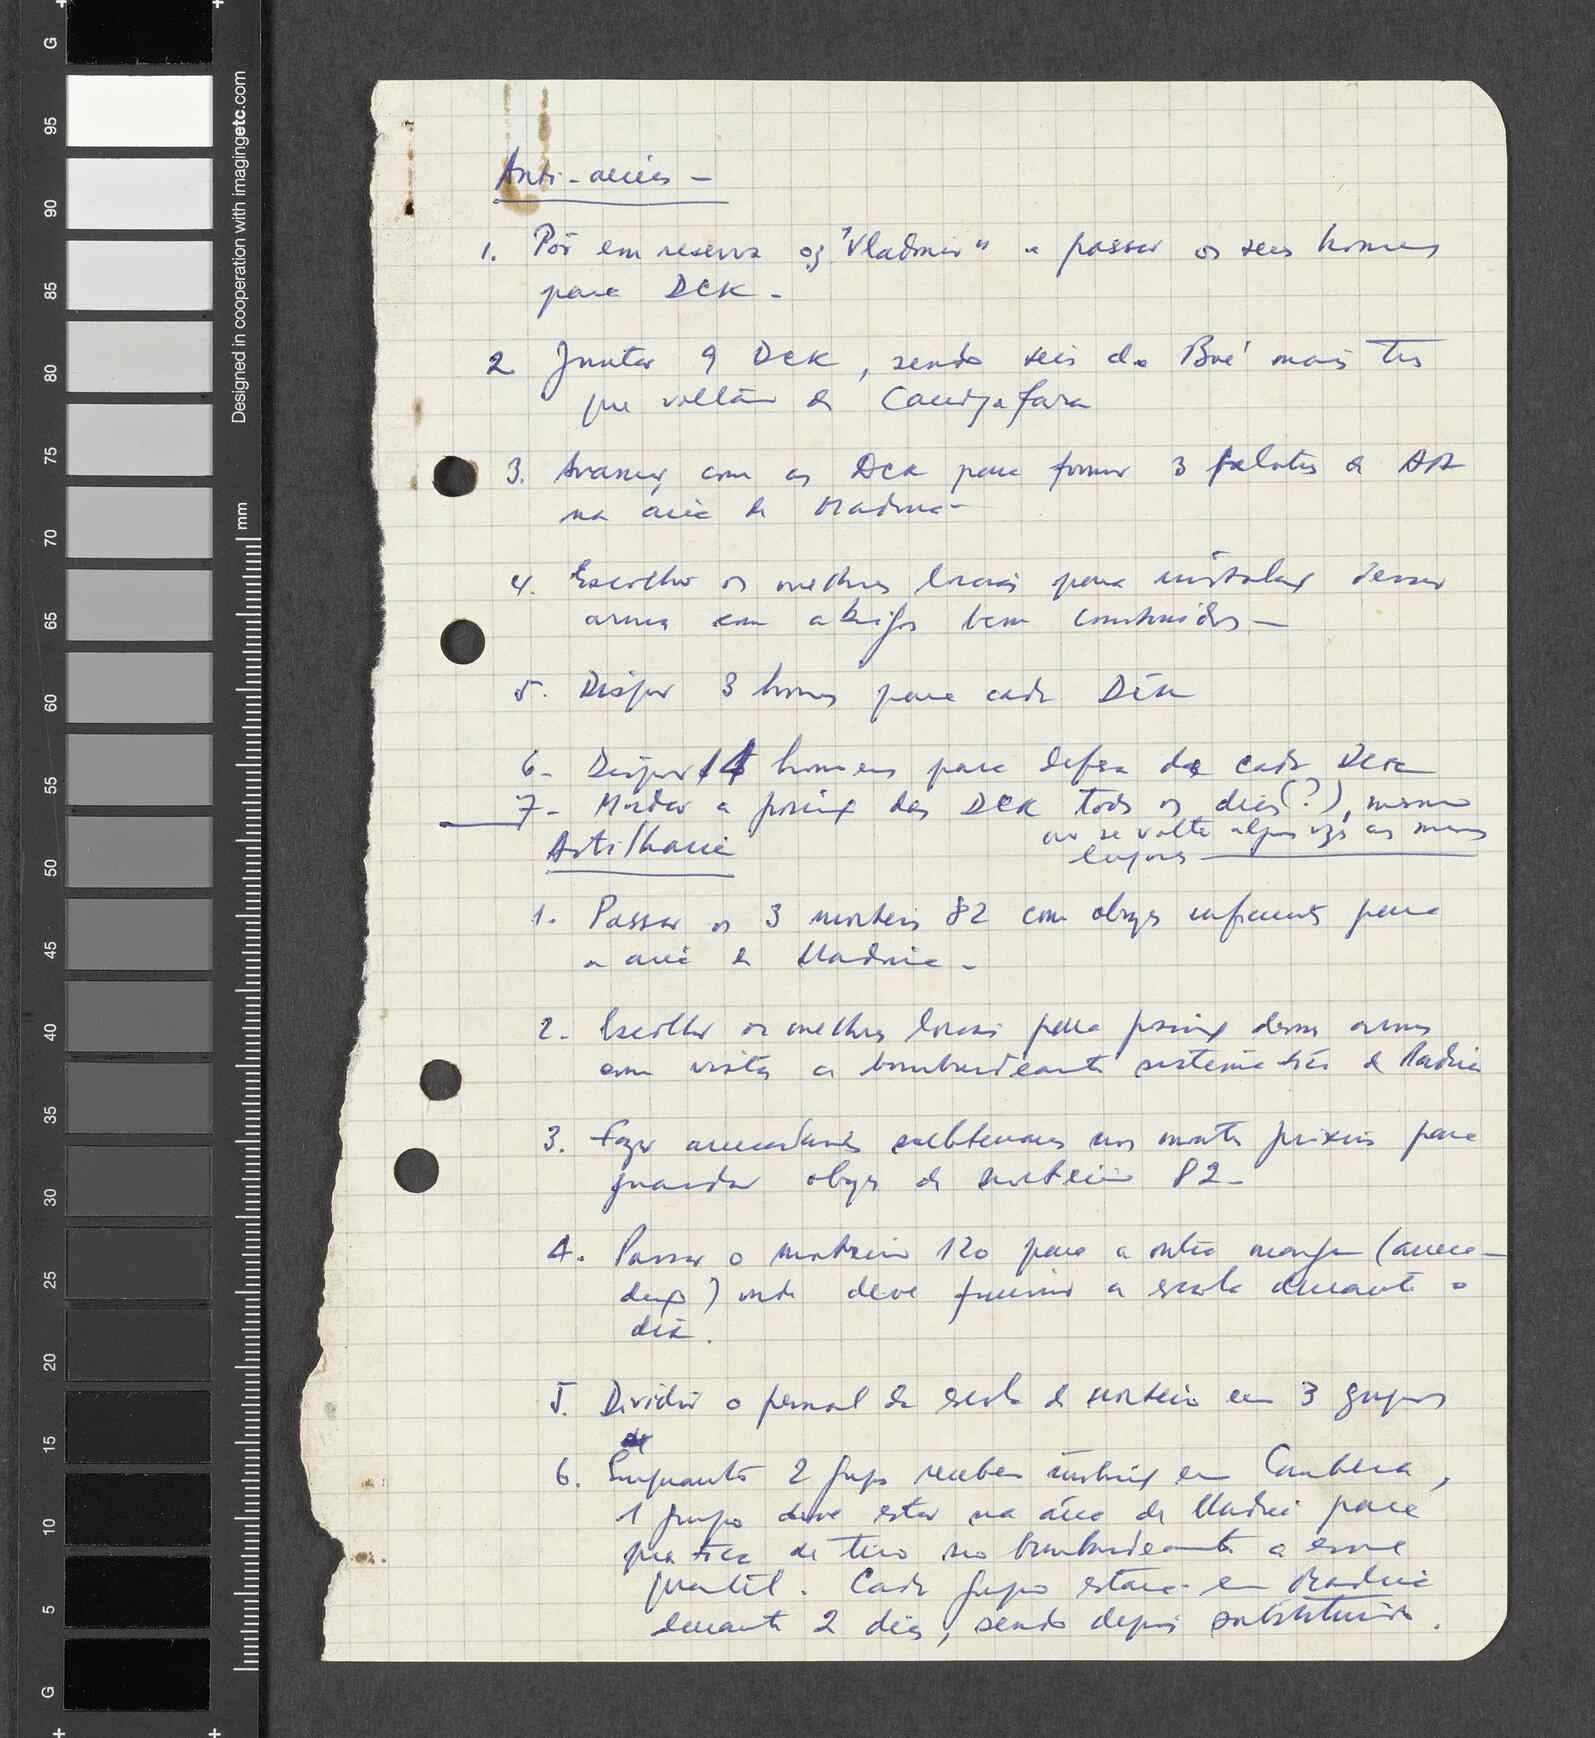 Anti-aérea -
1. Pôr em reserva os "Vladimir" e passar os seus homens
para DCK -
2 Juntar 9 DCK, sendo seis do Boé mais três
que voltam de
3. Avançar com as DCK para formar 3 pelotões de
na área de Madina -
4. Escolher os melhores locais para instalação dessas
armas com abrigos bem construídos -
5. Dispor 3 homens para cada DCK
6 - Dispor homens para defesa de cada DCK
7 - Mudar a posição das DCK todos os dias (?), mesmo
que se volte algumas vezes aos mesmos
lugares
Artilharia
1. Passar os 3 morteiros 82 com obuses suficientes para
a área de Madina -
2 - Escolher os melhores locais para posição dessas armas
com vista a bombardeamento sistemático de Madina
3. Fazer subterrâneos nos montes próximos para
guardar obuses de morteiro 82 -
4. Passar o morteiro 120 para a outra margem
onde deve funcionar a escola durante o
dia.
5. Dividir o pessoal da escola de morteiro em 3 grupos
6. Enquanto 2 grupos recebem instrução em Cambera,
1 grupo deve estar na área de Madina para
prática de tiro no bombardeamento a esse
quartel. Cada grupo estará em Madina
durante 2 dias, sendo depois substituido.
95
90
85
80
75
70
65
60
55
50
45
40
35
30
25
20
15
10
5
G
G
mm
Designed in cooperation with imagingetc.com